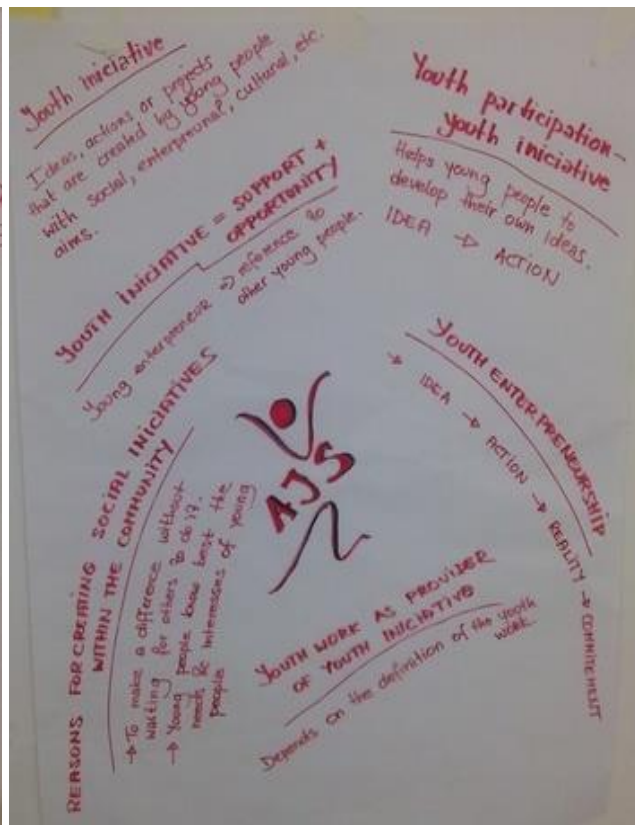 Youth iniciative
Ideas, actions or projects
that are created by young people
with social, enterpreunal, cultural, etc.
aims.
YOUTH INICIATIVE = SUPPORT +
OPPORTUNITY
Young enterpreneur → reference to
other young people.
Youth participation-
youth iniciative
Helps young people to
develop their own ideas.
IDEA → ACTION
YOUTH ENTERPRENEURSHIP
→ IDEA → ACTION → REALITY → COMMITEMENT
REASONS FOR CREATING SOCIAL INICIATIVES
WITHIN THE COMMUNITY
→ To make a difference without
waiting for others to do it.
→ Young people know best the
needs & interesses of young
people
AJS
YOUTH WORK AS PROVIDER
OF YOUTH INICIATIVE
Depends on the definition of the youth
work.